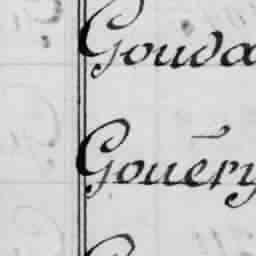 Gouda
Gouēry